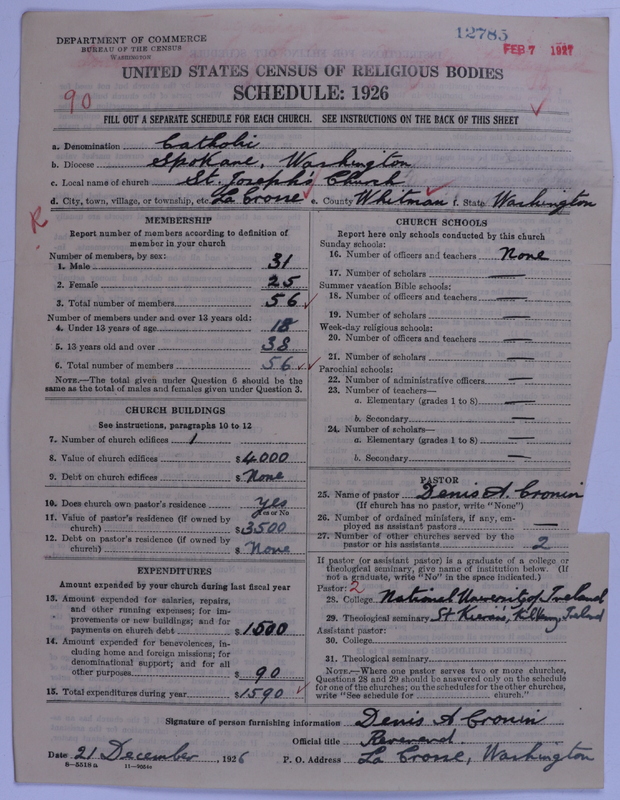 DEPARTMENT OF COMMERCE
BUREAU OF THE CENSUS
WASHINGTON
12785
FEB 7 1927
UNITED STATES CENSUS OF RELIGIOUS BODIES
SCHEDULE: 1926
90
FILL OUT A SEPARATE SCHEDULE FOR EACH CHURCH. SEE INSTRUCTIONS ON THE BACK OF THIS SHEET
a. Denomination Catholic
b. Diocese Spokane, Washington
c. Local name of church St. Joseph's Church
d. City, town, village, or township, etc. La Crosse e. County Whitman f. State Washington
R
MEMBERSHIP
Report number of members according to definition of
member in your church
Number of members, by sex:
1. Male 31
2. Female 25
3. Total number of members 56
Number of members under and over 13 years old:
4. Under 13 years of age 18
5. 13 years old and over 38
6. Total number of members 56
NOTE.—The total given under Question 6 should be
the same as the total of males and females given under Question 3.
CHURCH BUILDINGS
See instructions, paragraphs 10 to 12
7. Number of church edifices 1
8. Value of church edifices $4000
9. Debt on church edifices $None
10. Does church own pastor's residence Yes
Yes or No
11. Value of pastor's residence (if owned by
church) $3500
12. Debt on pastor's residence (if owned by
church) $None
EXPENDITURES
Amount expended by your church during last fiscal year
13. Amount expended for salaries, repairs,
and other running expenses; for im-
provements or new buildings; and for
payments on church debt $1500
14. Amount expended for benevolences, in-
cluding home and foreign missions; for
denominational support; and for all
other purposes $90
15. Total expenditures during year $1590
CHURCH SCHOOLS
Report here only schools conducted by this church
Sunday schools:
16. Number of officers and teachers None
17. Number of scholars —
Summer vacation Bible schools:
18. Number of officers and teachers —
19. Number of scholars —
Week-day religious schools:
20. Number of officers and teachers —
21. Number of scholars —
Parochial schools:
22. Number of administrative officers —
23. Number of teachers—
a. Elementary (grades 1 to 8) —
b. Secondary —
24. Number of scholars—
a. Elementary (grades 1 to 8) —
b. Secondary —
PASTOR
25. Name of pastor Denis A. Cronin
(If church has no pastor, write "None")
26. Number of ordained ministers, if any, em-
ployed as assistant pastors —
27. Number of other churches served by the
pastor or his assistants 2
If pastor (or assistant pastor) is a graduate of a college or
theological seminary, give name of institution below. (If
not a graduate, write "No" in the space indicated.)
Pastor: 2
28. College National University of Ireland
29. Theological seminary St Kieran's, Kilkenny, Ireland
Assistant pastor:
30. College
31. Theological seminary
NOTE.—Where one pastor serves two or more churches,
Questions 28 and 29 should be answered only on the schedule
for one of the churches; on the schedules for the other churches,
write "See schedule for church."
Signature of person furnishing information Denis A Cronin
Official title Reverend.
Date 21 December, 1926 P. O. Address La Crosse, Washington
8—5518a 11—9554a